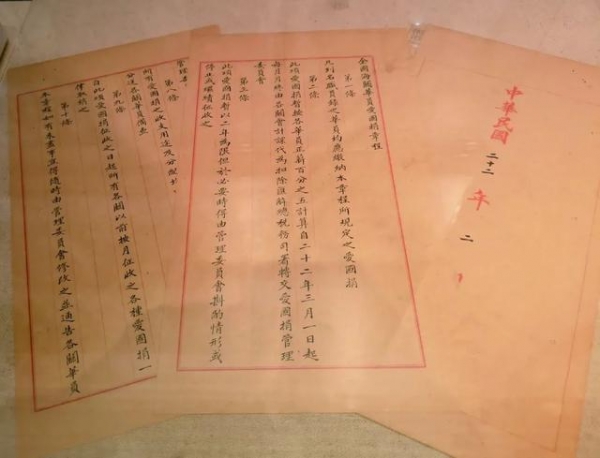 中華民國二十二年二
全國海關華員愛國捐章程
第一條
凡列名職員錄之華員均應繳納本章程所規定之愛國捐
第二條
此項愛國捐暫按各華員正薪百分之五計算自二十二年三月一日起
每月月終由各關會計課代為扣除匯解總稅務司署轉交愛國捐管理
委員會
第三條
此項愛國捐暫以二年為限但於必要時得由管理委員會斟酌情形或
停止或繼續征收之
管理委
第八條
所有愛國捐之收支用途應分
分送各關華員備查
第九條
自此項愛國捐征收之日起所有各關以前按月征收之各種愛國捐一
律取銷之
第十條
本章程如有未盡事宜得隨時由管理委員會修改之並通告各關華員